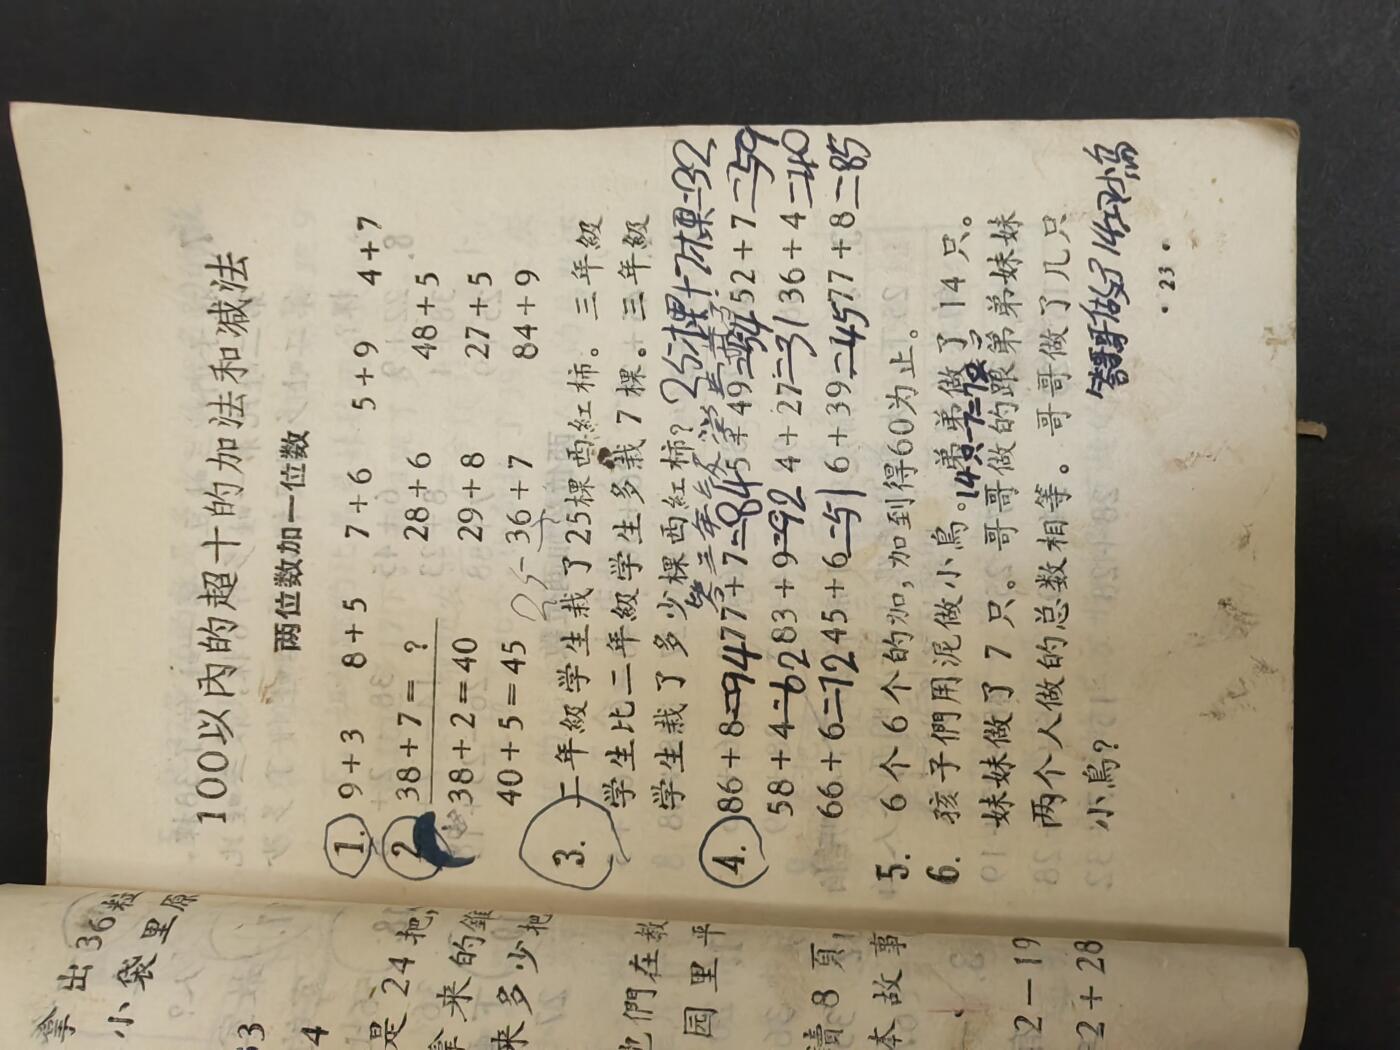 100以內的超十的加法和减法
两位数加一位数
1. 9+3 8+5 7+6 5+9 4+7
2. 38+7=? 28+6 48+5
38+2=40 29+8 27+5
40+5=45 36+7 84+9
25
3. 二年級学生栽了25棵西紅柿。三年級
学生比二年級学生多栽7棵。三年級
学生栽了多少棵西紅柿？25棵+7棵=32
答三年級学生
4. 86+8=94 77+7=84 5+49=54 52+7=59
58+4=62 83+9=92 4+27=31 36+4=40
66+6=72 45+6=51 6+39=45 77+8=85
5. 6个6个的加，加到得60为止。
6. 孩子們用泥做小鳥。弟弟做了14只。
14只-7=7只
妹妹做了7只。哥哥做的跟弟弟妹妹
两个人做的总数相等。哥哥做了几只
小鳥？
答哥哥做了14只小鸟
·23·
拿出36粒
小袋里原
63
4
是24把，
拿来的錐
来多少把
他們在教
园里平
讀8頁
本故事
2－19
2＋28